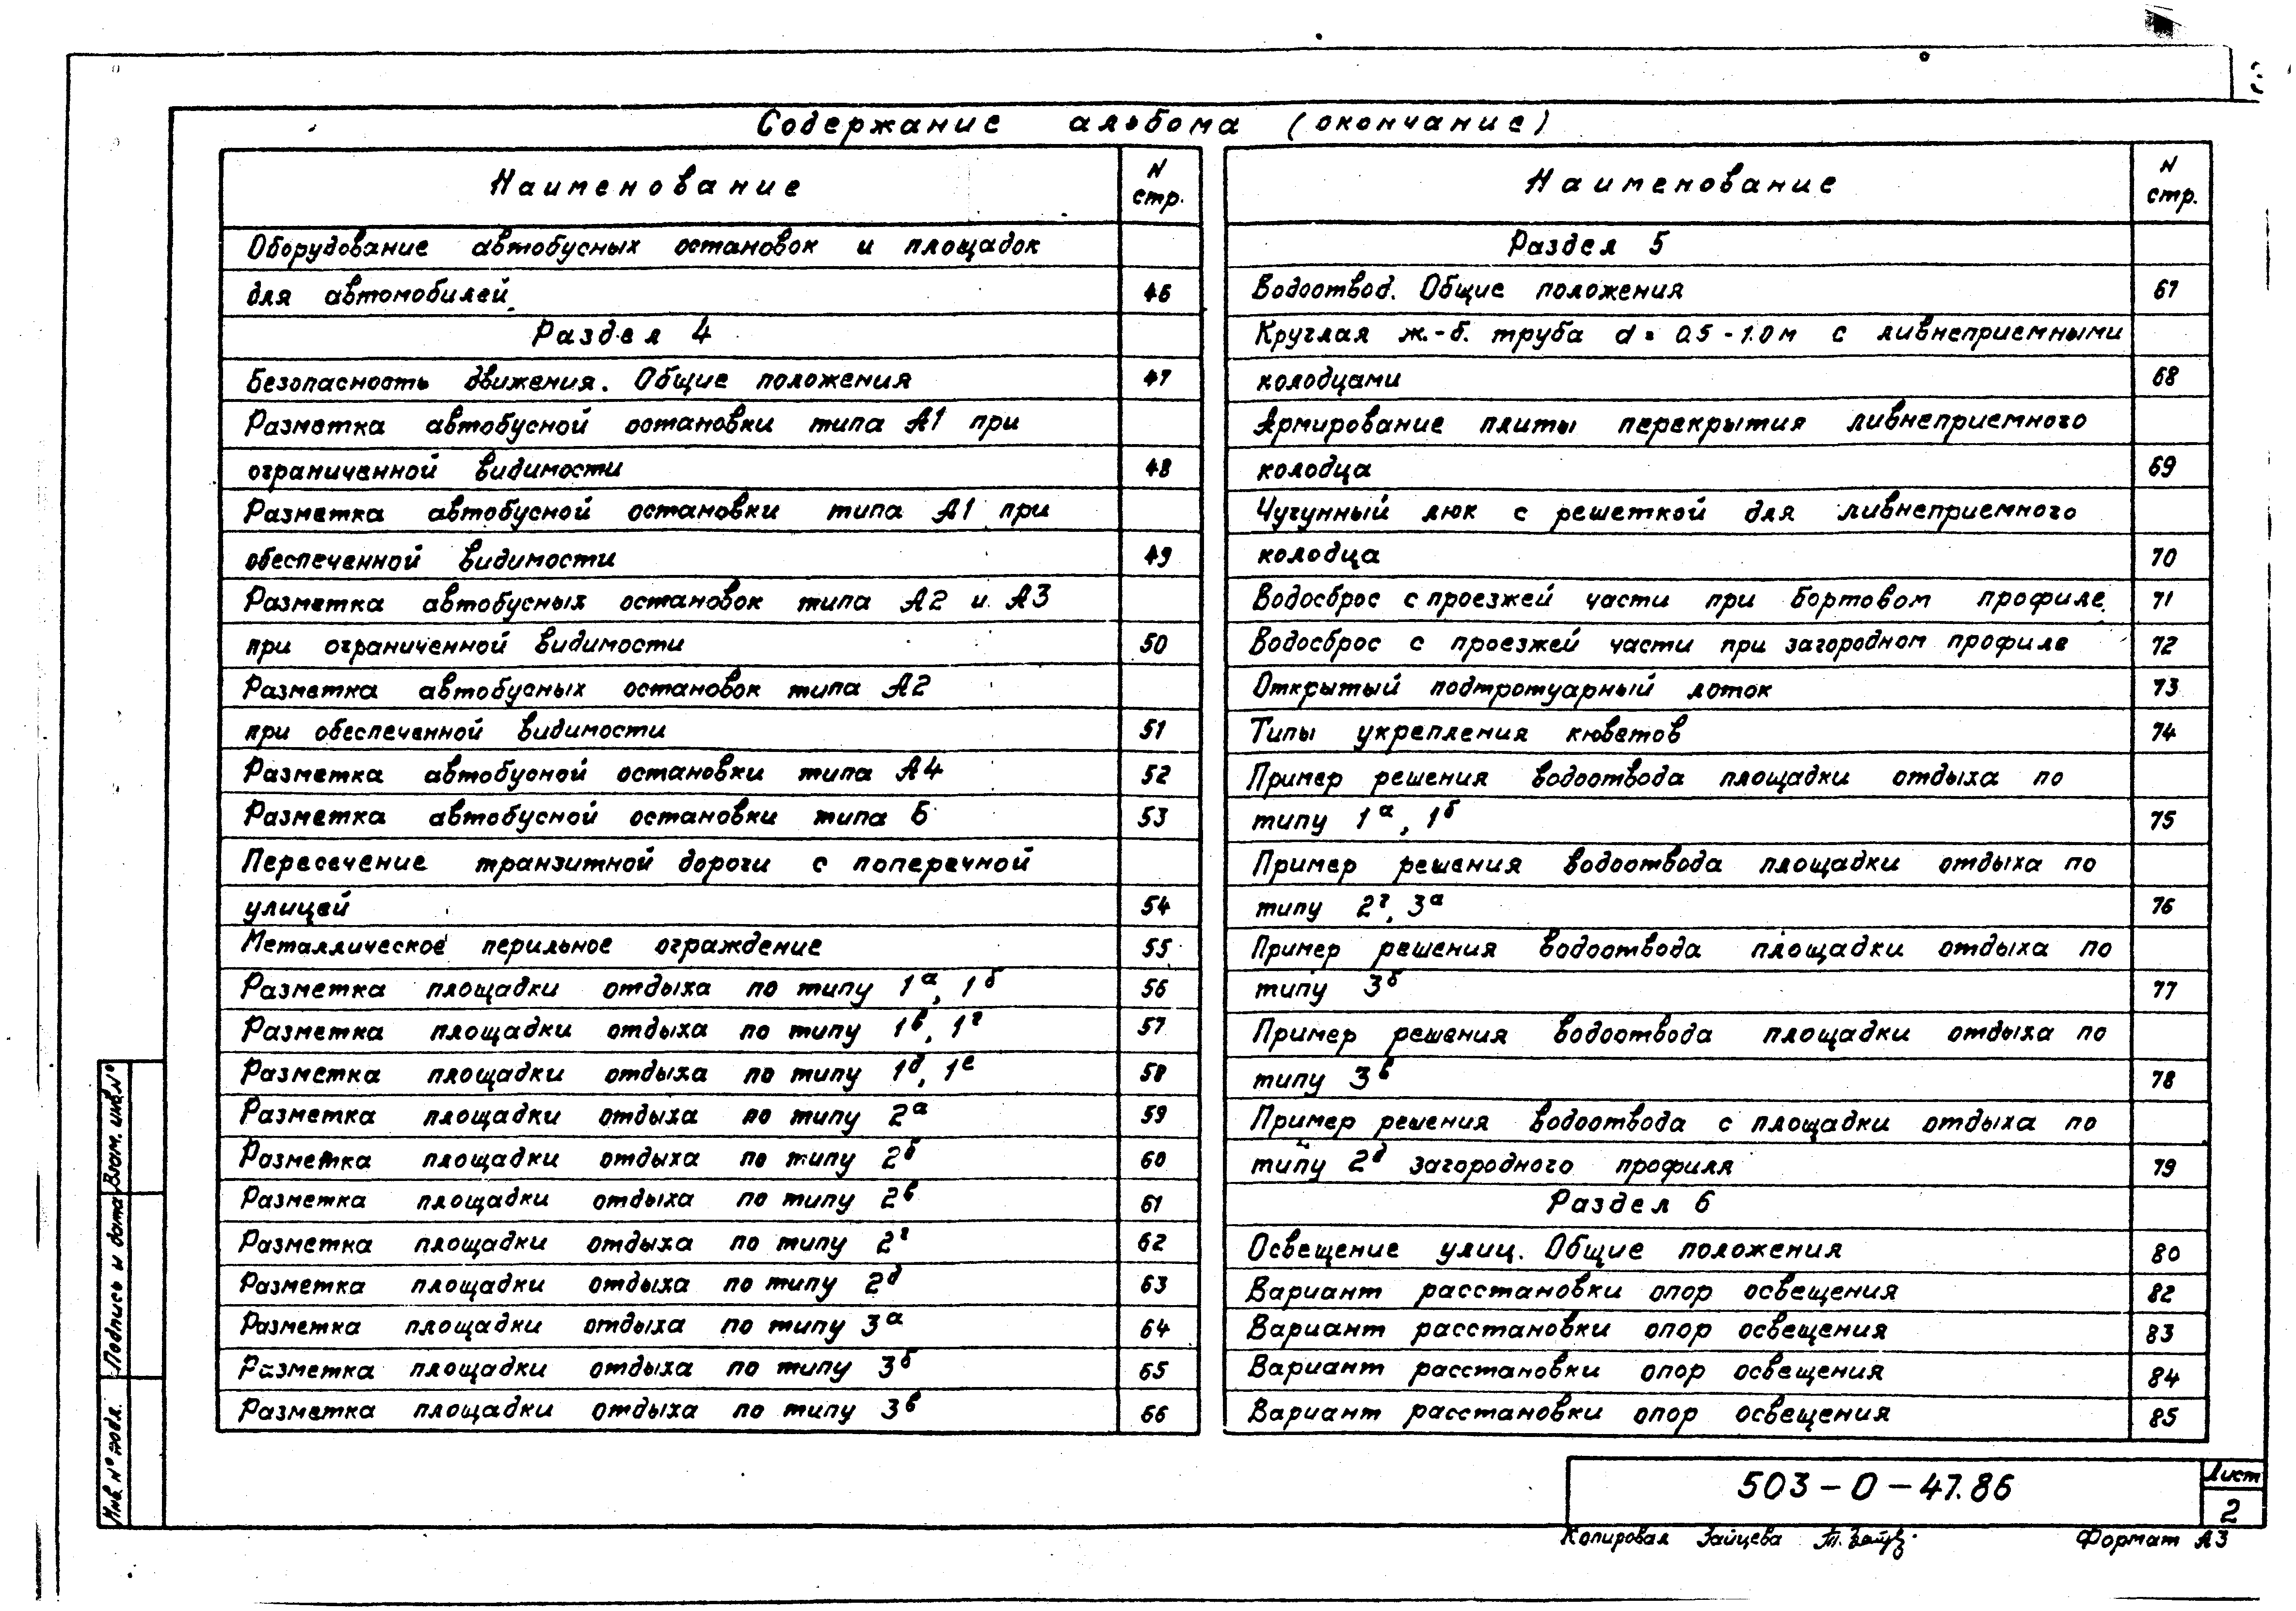 Содержание альбома (окончание)
Наименование
N
стр.
Оборудование автобусных остановок и площадок
для автомобилей. 46
Раздел 4
Безопасность движения. Общие положения 47
Разметка автобусной остановки типа А1 при
ограниченной видимости 48
Разметка автобусной остановки типа А1 при
обеспеченной видимости 49
Разметка автобусных остановок типа А2 и А3
при ограниченной видимости 50
Разметка автобусных остановок типа А2
при обеспеченной видимости 51
Разметка автобусной остановки типа А4 52
Разметка автобусной остановки типа Б 53
Пересечение транзитной дороги с поперечной
улицей 54
Металлическое перильное ограждение 55
Разметка площадки отдыха по типу 1а, 1б 56
Разметка площадки отдыха по типу 1в, 1г 57
Разметка площадки отдыха по типу 1д, 1е 58
Разметка площадки отдыха по типу 2а 59
Разметка площадки отдыха по типу 2б 60
Разметка площадки отдыха по типу 2в 61
Разметка площадки отдыха по типу 2г 62
Разметка площадки отдыха по типу 2д 63
Разметка площадки отдыха по типу 3а 64
Разметка площадки отдыха по типу 3б 65
Разметка площадки отдыха по типу 3в 66
Наименование
N
стр.
Раздел 5
Водоотвод. Общие положения 67
Круглая ж.-б. труба d = 0.5 - 1.0 м с ливнеприемными
колодцами 68
Армирование плиты перекрытия ливнеприемного
колодца 69
Чугунный люк с решеткой для ливнеприемного
колодца 70
Водосброс с проезжей части при бортовом профиле 71
Водосброс с проезжей части при загородном профиле 72
Открытый подтротуарный лоток 73
Типы укрепления кюветов 74
Пример решения водоотвода площадки отдыха по
типу 1а, 1б 75
Пример решения водоотвода площадки отдыха по
типу 2г, 3а 76
Пример решения водоотвода площадки отдыха по
типу 3б 77
Пример решения водоотвода площадки отдыха по
типу 3в 78
Пример решения водоотвода с площадки отдыха по
типу 2д загородного профиля 79
Раздел 6
Освещение улиц. Общие положения 80
Вариант расстановки опор освещения 82
Вариант расстановки опор освещения 83
Вариант расстановки опор освещения 84
Вариант расстановки опор освещения 85
Взам. инв. №
Подпись и дата
Инв. № подл.
503-0-47.86
Лист
2
Копировал Зайцева
Формат А3